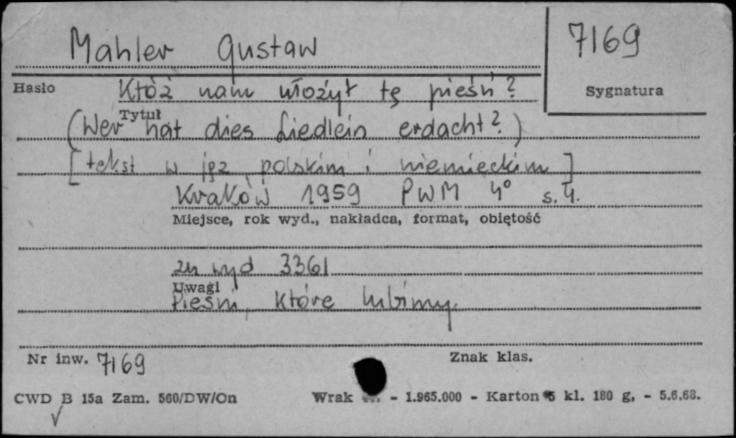 Mahler Gustaw
7169
Hasło
Sygnatura
Któż nam ułożył tę pieśń?
Tytuł
(Wer hat dies Liedlein erdacht?)
[tekst w jęz. polskim i niemieckim]
Kraków 1959 PWM 4° s. 4.
Miejsce, rok wyd., nakładca, format, objętość
zn wyd 3361
Uwagi
Pieśni, które lubimy.
Nr inw. 7169
Znak klas.
CWD B 15a Zam. 560/DW/On
Wrak - 1.965.000 - Karton kl. 180 g, - 5.6.68.